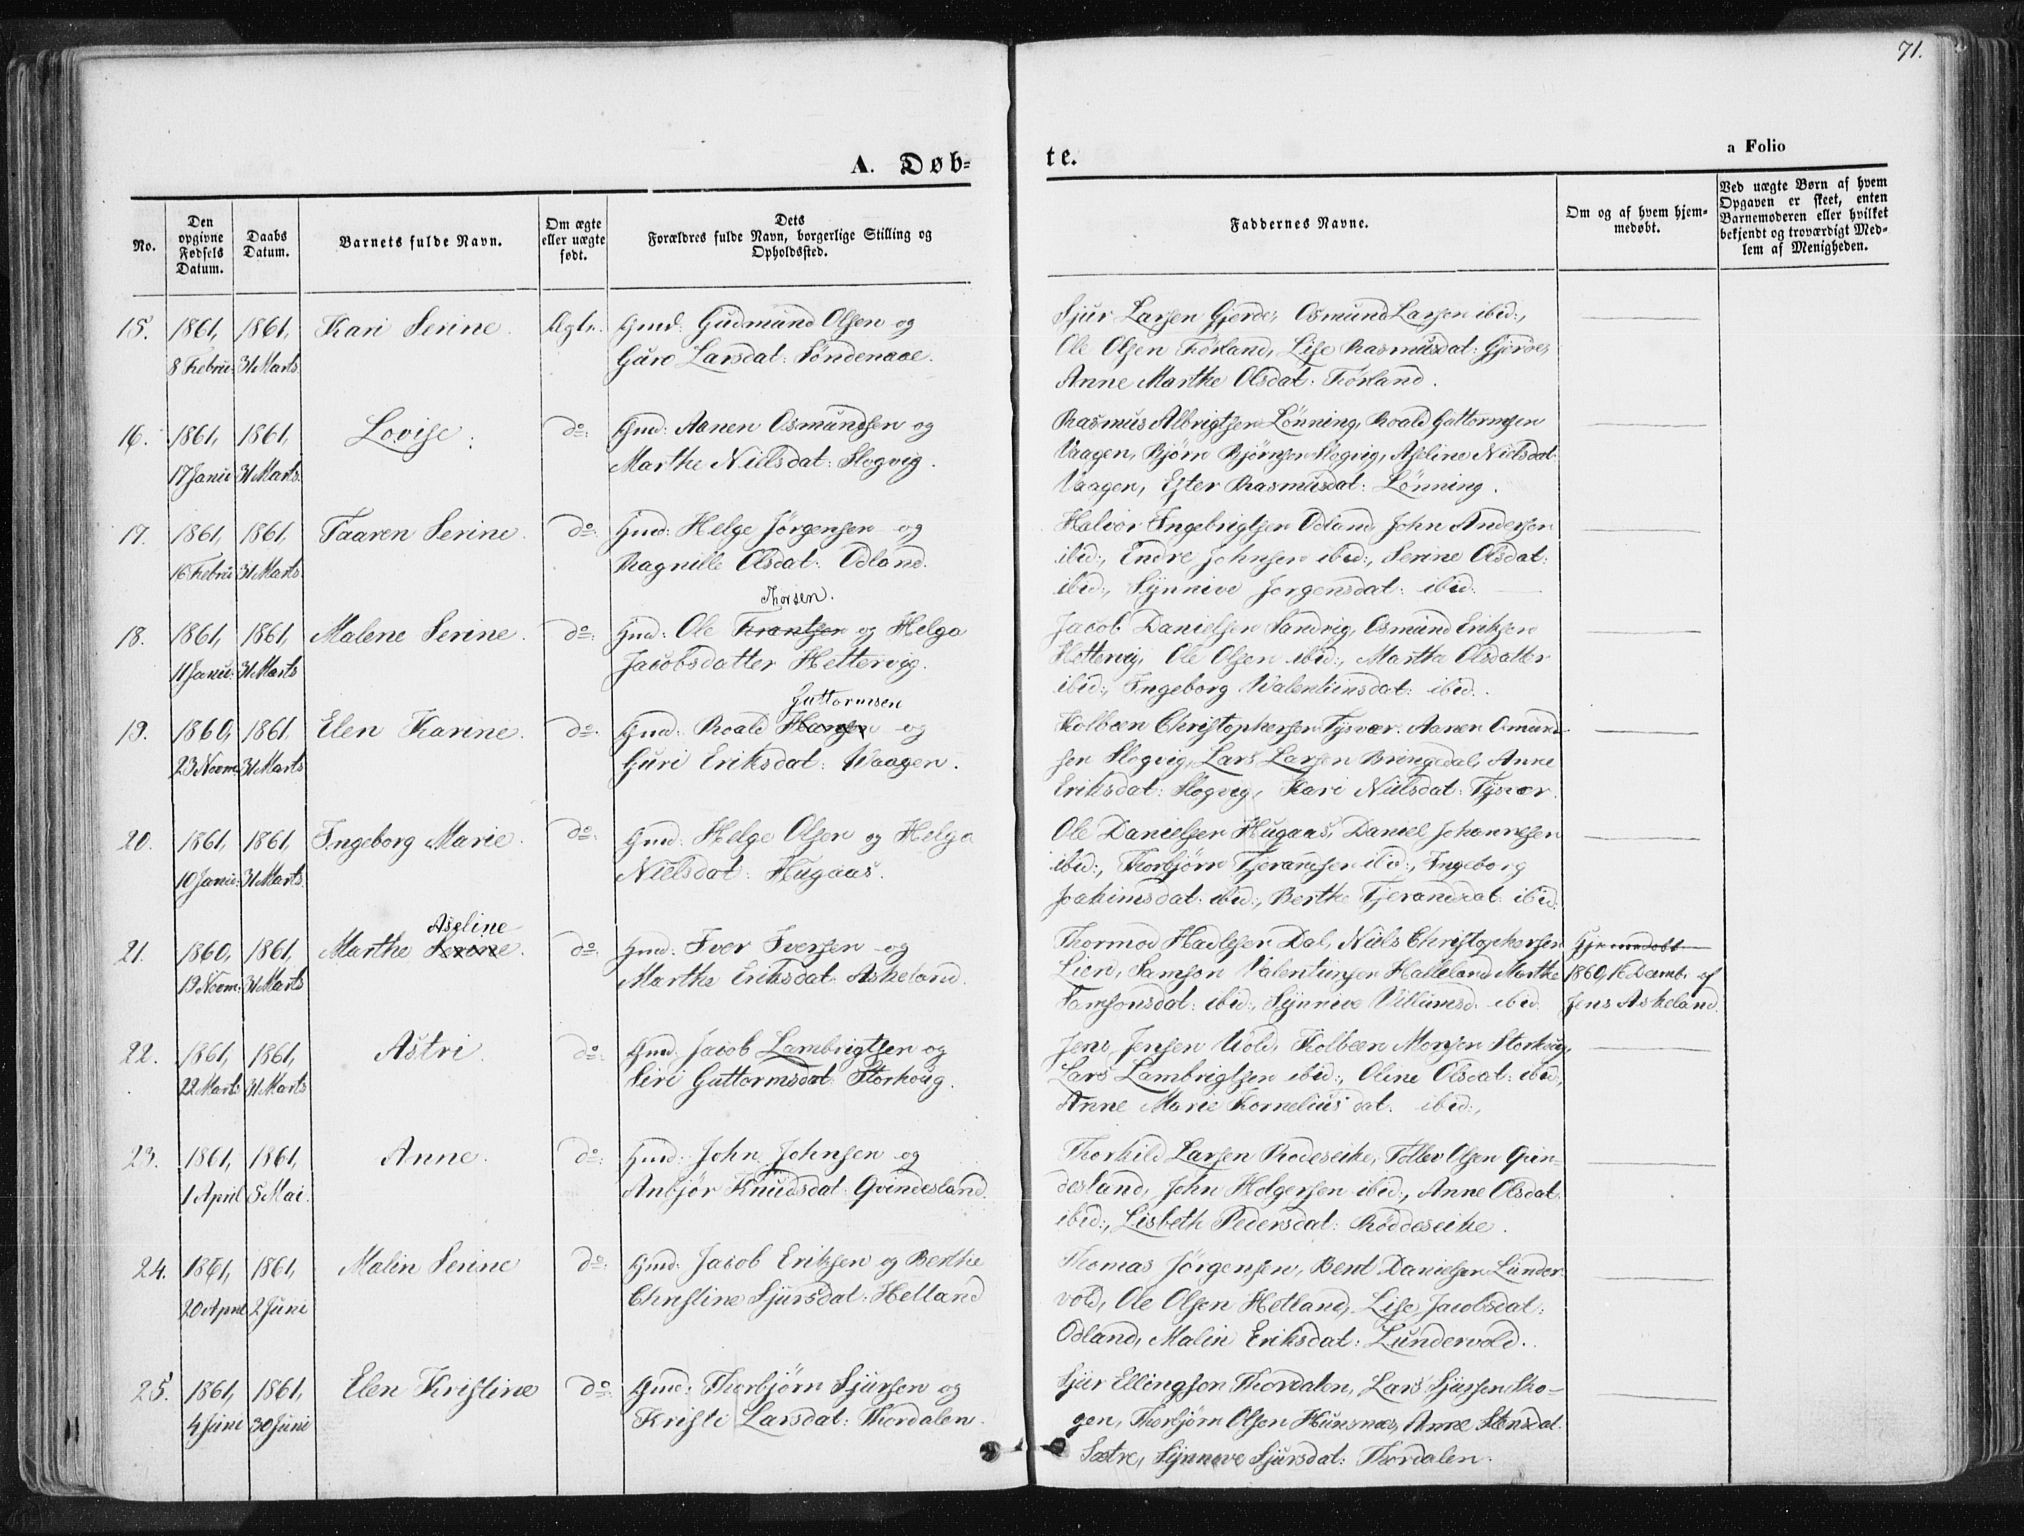 71.
A. Døb-
te.
a Folio
No.
Den opgivne Fødsels Datum.
Daabs Datum.
Barnets fulde Navn.
Om ægte eller uægte født.
Dets Forældres fulde Navn, borgerlige Stilling og Opholdssted.
Faddernes Navne.
Om og af hvem hjem-
medøbt.
Ved uægte Børn af hvem
Opgaven er skeet, enten
Barnemoderen eller hvilket
bekjendt og troværdigt Med-
lem af Menigheden.
15. 1861, 1861, Kari Serine. Ægte. Gmd: Gudmund Olsen og
8 Febru: 31 Marts Guro Larsdat: Søndenaae.
Sjur Larsen Gjerde, Osmund Larsen ibid:,
Ole Olsen Førland, Lise Rasmusdat: Gjerde,
Anne Marthe Olsdat: Førland.
16. 1861, 1861, Lovise. do: Gmd: Aanen Osmundsen og
17 Janu: 31 Marts Marthe Nielsdat: Slogvig.
Rasmus Albrigtsen Lønning, Roald Guttormsen
Vaagen, Bjørn Bjørnsen Slogvig, Aseline Nielsdat:
Vaagen, Ester Rasmusdat: Lønning.
17. 1861, 1861. Taaren Serine. do: Gmd: Helge Jørgensen og
16 Febru 31 Marts Ragnille Olsdat: Odland.
Halvor Ingebrigtsen Odland, John Andersen
ibid:, Endre Johnsen ibid:, Serine Olsdat:
ibid:, Synnive Jorgensdat: ibid:
Thorsen.
18. 1861, 1861, Malene Serine. do: Gmd: Ole Frantsen og Helga
11 Janu: 31 Marts Jacobsdatter Hettervig.
Jacob Danielsen Sandvig, Osmund Eriksen
Hettervig, Ole Olsen ibid:, Martha Olsdatter
ibid:, Ingeborg Valentinsdat: ibid.
Guttormsen
19. 1860, 1861. Elen Karine. do. Gmd: Roald Hansen og
23 Novm: 31 Marts Guri Eriksdat: Vaagen.
Kolbeen Christophersen Tysvær. Aanen Osmund-
sen Slogvig, Lars Larsen Bringedal, Anne
Eriksdat: Slogvig, Kari Nielsdat: Tysvær.
20. 1861, 1861, Ingeborg Marie. do: Gmd: Helge Olsen og Helga
10 Janu: 31 Marts Nielsdat: Hugaas.
Ole Danielsen Hugaas, Daniel Johannesen
ibid:, Thorbjørn Tjerandsen ibid:, Ingeborg
Joakimsdat: ibid:, Berthe Tjerandsdat: ibid:
Aseline
21. 1860, 1861, Marthe Serine. do: Gmd: Iver Iversen og
19 Novm: 31 Marts Marthe Eriksdat: Askeland.
Thormod Hadlesen Dal, Niels Christophersen
Lien, Samson Valentinsen Halleland, Marthe
Samsonsdat: ibid:, Synneve Villumsd: ibid
Hjemmedøbt
1860, 16 Decemb: af
Jens Askeland.
22. 1861, 1861, Astri. do: Gmd: Jacob Lambrigtsen og
22 Marts 31 Marts Siri Guttormsdat: Storhoug.
Jens Jensen Vold, Kolbeen Monsen Storhoug,
Lars Lambrigtsen ibid:, Oline Olsdat: ibid,
Anne Marie Kornelius dat: ibid:,
23. 1861, 1861, Anne. do: Gmd: John Johnsen og
1 April 5 Mai. Anbjør Knudsdat: Qvindesland.
Thorkild Larsen Rødeseike, Tollev Olsen Qvin-
desland, John Holgersen ibid:, Anne Olsdat:
ibid:, Lisbeth Pedersdat: Røddeseike.
24. 1861, 1861, Malin Serine do: Gmd: Jacob Eriksen og Berthe
20 April 2 Juni Christine Sjursdat: Hetland
Thomas Jørgensen, Bent Danielsen Lunder-
vold, Ole Olsen Hetland, Lise Jacobsdat:
Odland, Malin Eriksdat: Lundervold.
25. 1861, 1861, Elen Kristine do: Gmd: Thorbjørn Sjursen og
4 Juni 30 Juni Kristi Larsdat: Thordalen.
Sjur Ellingsen Thordalen, Lars Sjursen Sko-
gen, Thorbjørn Olsen Hunsnæs, Anne Stensdat:
Sætre, Synneve Sjursdat: Thordalen.